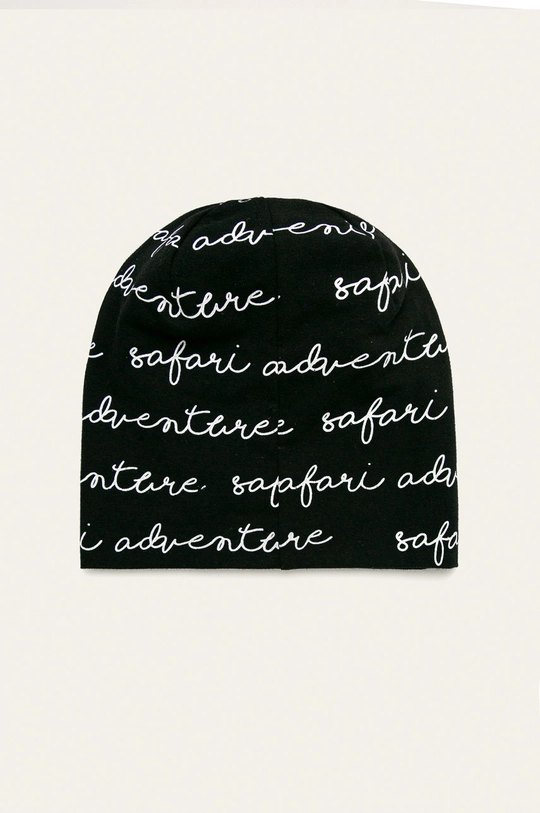 adventure
dventure. safari
e safari aadventu
dventure safari
nture. sapafari adv
i adventure safa